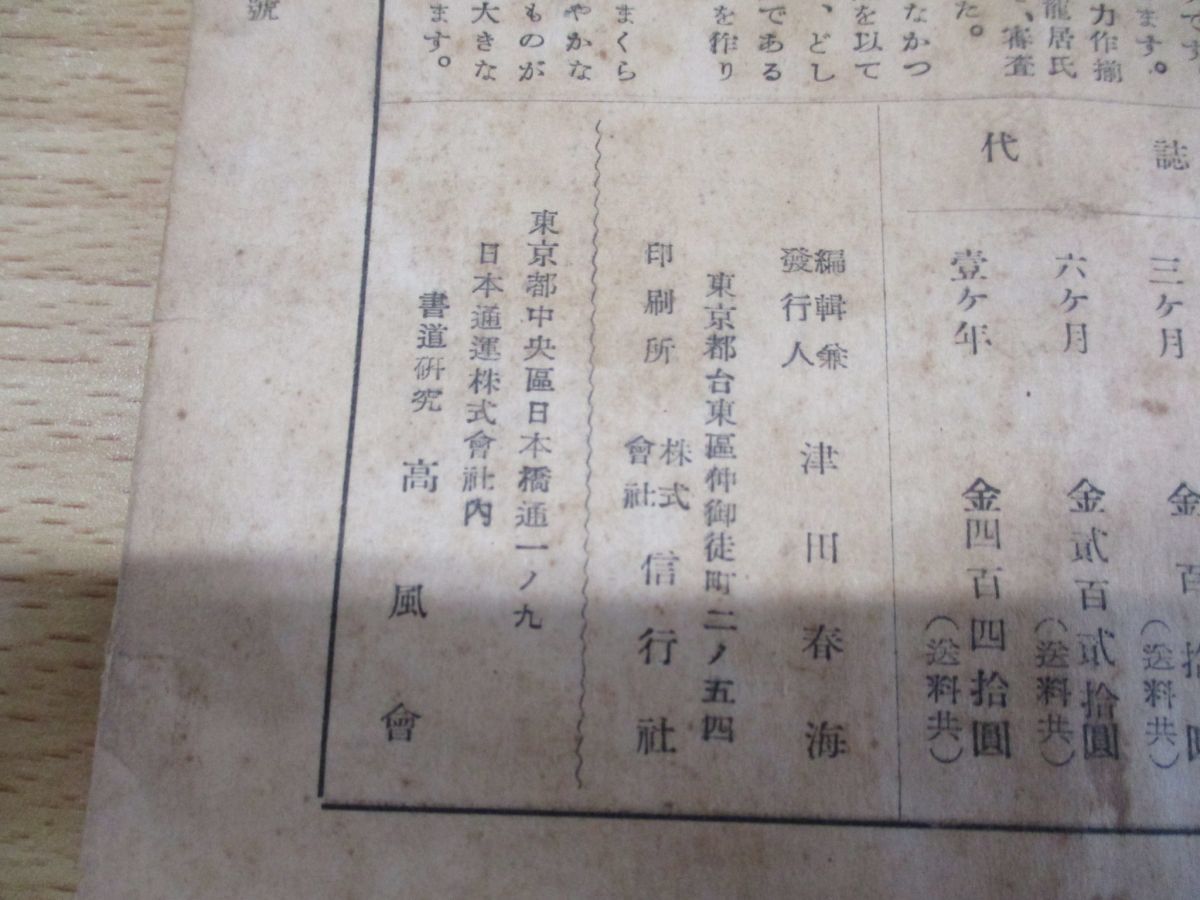 です
ます。
力作揃
龍居氏
、審査
た。
なかつ
を以て
、どし
である
を作り
まくら
やかな
ものが
大きな
ます。
號
誌
代
三ヶ月
金百拾圓
(送料共)
六ヶ月
金貳百貳拾圓
(送料共)
壹ヶ年
金四百四拾圓
(送料共)
編輯兼
發行人
津田春海
東京都台東區仲御徒町二ノ五四
印刷所
株式
會社
信行社
東京都中央區日本橋通一ノ九
日本通運株式會社內
書道研究 高風會